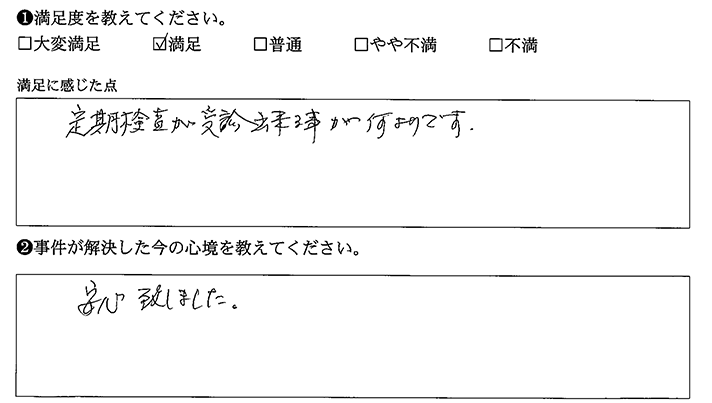 ❶満足度を教えてください。
☐大変満足 ☑満足 ☐普通 ☐やや不満 ☐不満
満足に感じた点
定期検査が受診出来る事が何よりです.
❷事件が解決した今の心境を教えてください。
安心致しました。